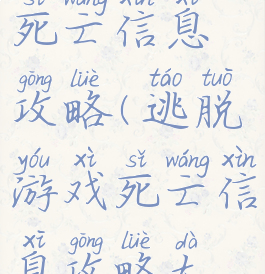 sǐ wáng xìn xī
死亡信息
gōng lüè táo tuō
攻略(逃脱
yóu xì sǐ wáng xìn
游戏死亡信
xī gōng lüè dà
息攻略大